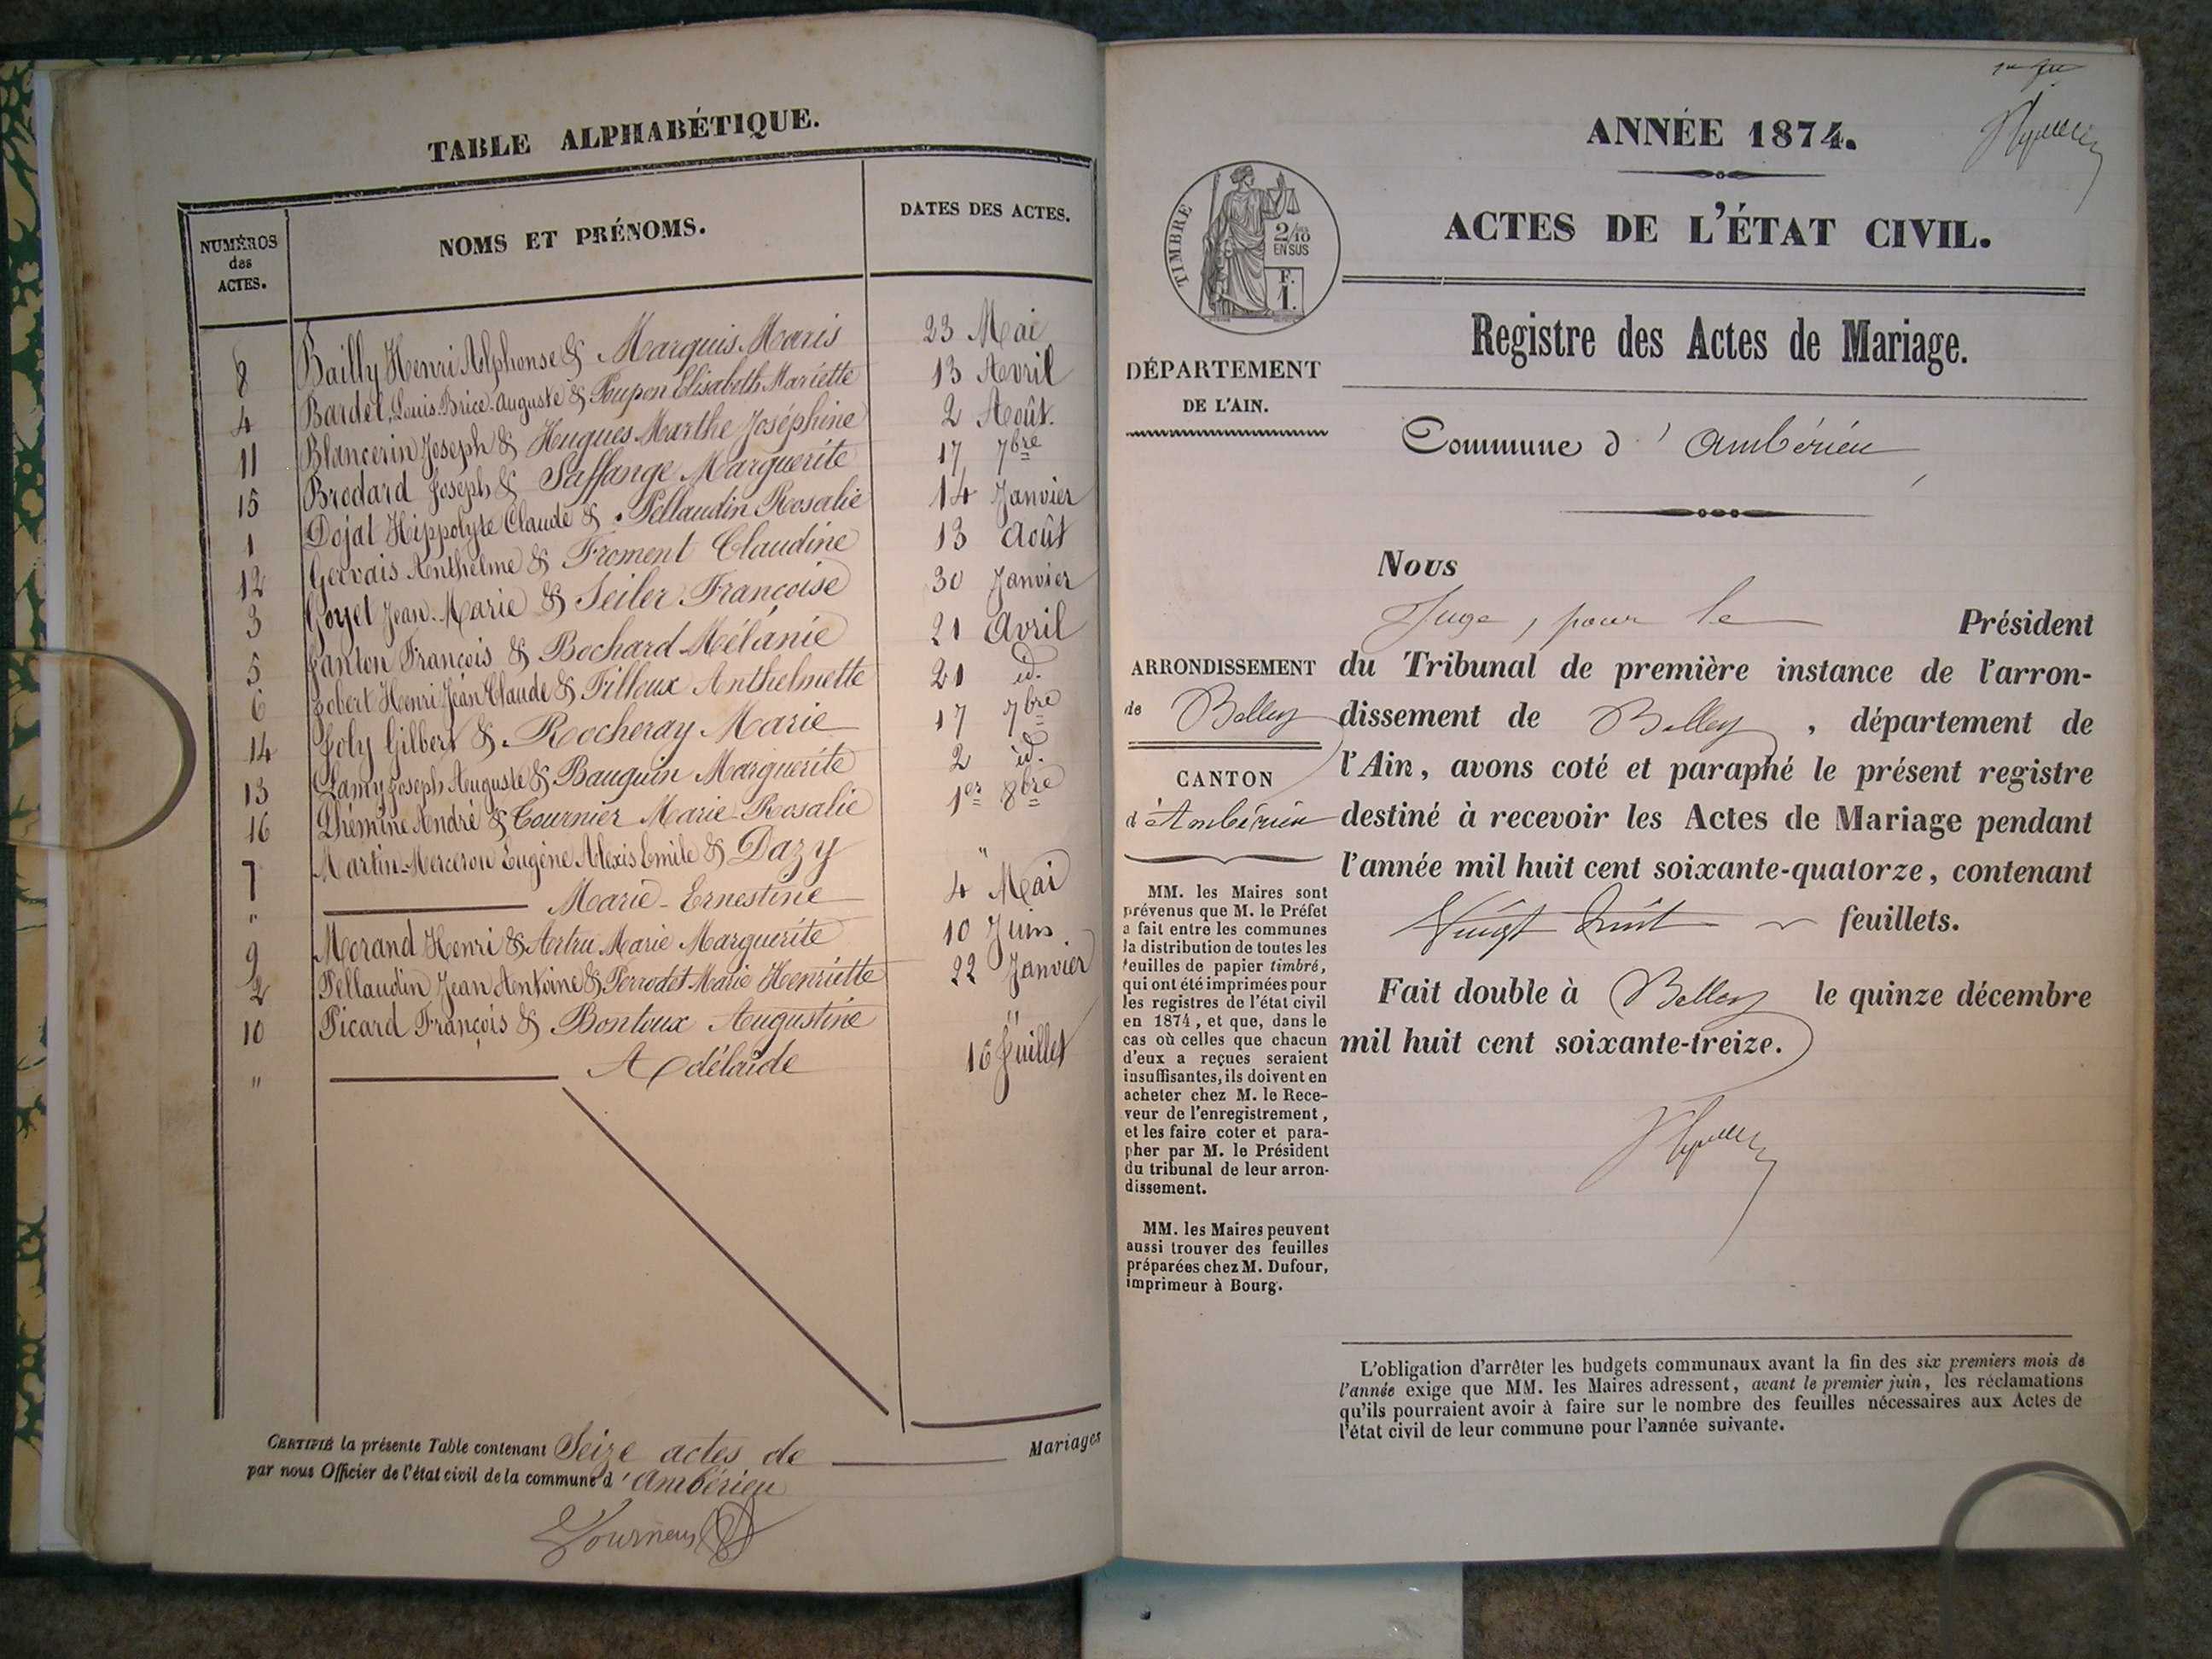 TABLE ALPHABÉTIQUE.
NUMÉROS des ACTES.
NOMS ET PRÉNOMS.
DATES DES ACTES.
8 Bailly Henri Alphonse & Marquis Maris 23 Mai
4 Bardet, Louis-Brice-Auguste & Poupon Elisabeth Mariette 13 Avril
11 Blancerin Joseph & Hugues Marthe Joséphine 2 Août.
15 Brodard Joseph & Saffange Marguerite 17 7bre
1 Dojat Hippolyte Claude & Pellaudin Rosalie 14 Janvier
12 Gervais Anthelme & Froment Claudine 13 Août
3 Goyet Jean-Marie & Seiler Françoise 30 Janvier
5 Janton François & Bochard Mélanie 21 Avril
6 Jobert Henri Jean Claude & Tilloux Anthelmette 21 id.
14 Joly Gilbert & Rocheray Marie 17 7bre
13 Lamy Joseph Auguste & Bauguin Marguerite 2 id.
16 Lhémine André & Tournier Marie-Rosalie 1er 8bre
7 Martin-Merceron Eugène Alexis Emile & Dazy "
" Marie-Ernestine 4 Mai
9 Morand Henri & Artru Marie Marguerite 10 Juin
2 Pellaudin Jean Antoine & Perrodet Marie Henriette 22 Janvier
10 Picard François & Bontoux Augustine "
" Adélaïde 16 Juillet
CERTIFIÉ la présente Table contenant Seize actes de Mariages
par nous Officier de l'état civil de la commune d'Ambérieu
ANNÉE 1874.
ACTES DE L'ÉTAT CIVIL.
TIMBRE
2/10 EN SUS
F. 1.
Registre des Actes de Mariage.
DÉPARTEMENT
DE L'AIN.
Commune d'Ambérieu
Nous
Juge, pour le Président
ARRONDISSEMENT
de Belley
CANTON
d'Ambérieu
du Tribunal de première instance de l'arron-
dissement de Belley, département de
l'Ain, avons coté et paraphé le présent registre
destiné à recevoir les Actes de Mariage pendant
l'année mil huit cent soixante-quatorze, contenant
Vingt huit feuillets.
Fait double à Belley le quinze décembre
mil huit cent soixante-treize.
MM. les Maires sont
prévenus que M. le Préfet
a fait entre les communes
la distribution de toutes les
feuilles de papier timbré,
qui ont été imprimées pour
les registres de l'état civil
en 1874, et que, dans le
cas où celles que chacun
d'eux a reçues seraient
insuffisantes, ils doivent en
acheter chez M. le Rece-
veur de l'enregistrement,
et les faire coter et para-
pher par M. le Président
du tribunal de leur arron-
dissement.
MM. les Maires peuvent
aussi trouver des feuilles
préparées chez M. Dufour,
imprimeur à Bourg.
L'obligation d'arrêter les budgets communaux avant la fin des six premiers mois de
l'année exige que MM. les Maires adressent, avant le premier juin, les réclamations
qu'ils pourraient avoir à faire sur le nombre des feuilles nécessaires aux Actes de
l'état civil de leur commune pour l'année suivante.